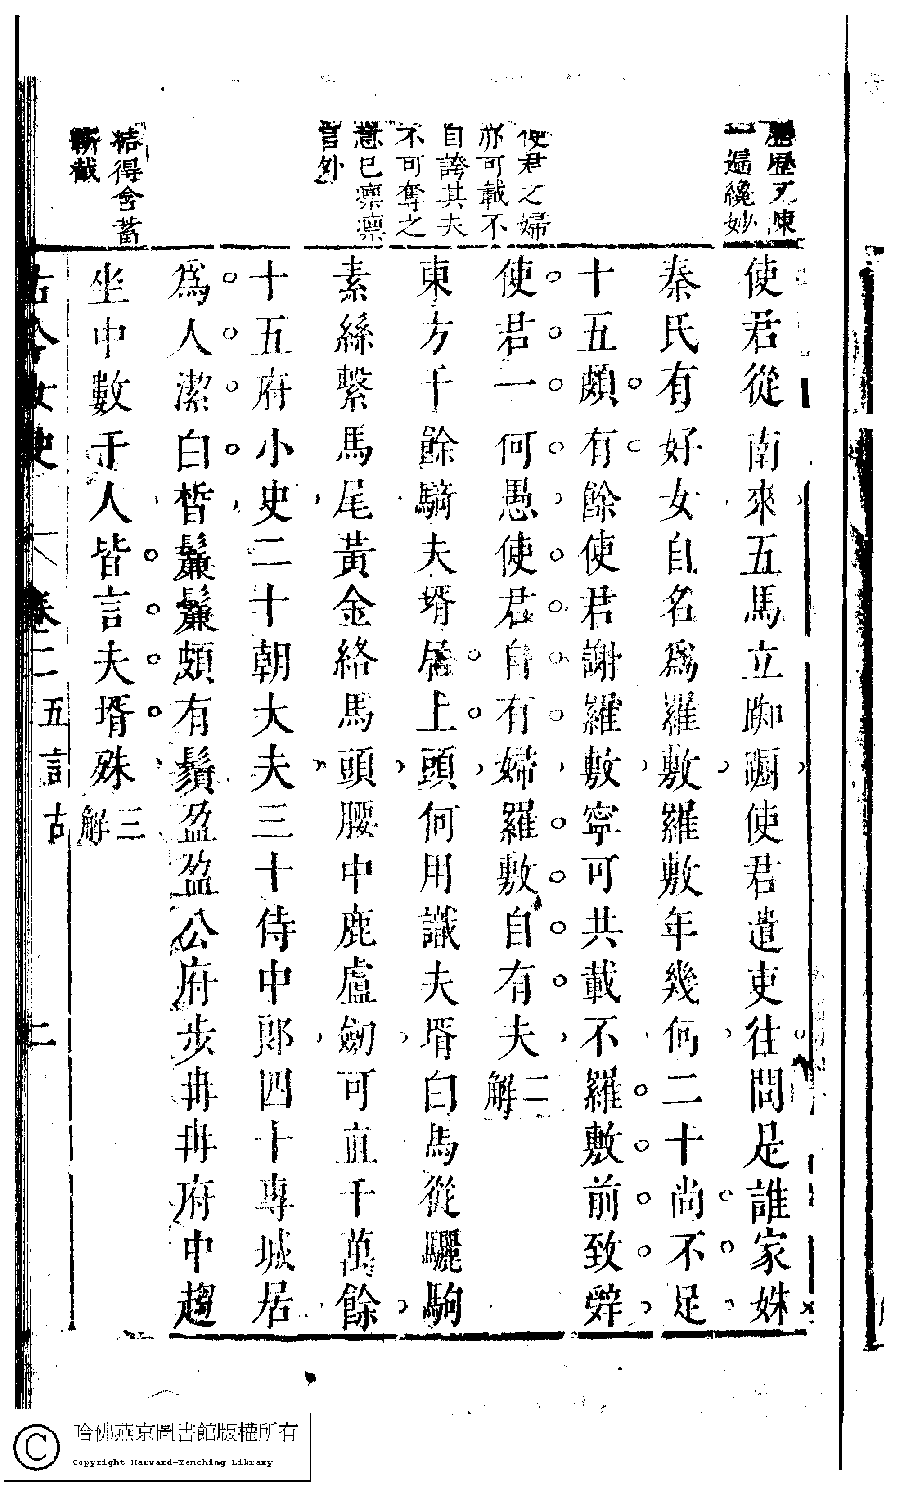 歷歷又陳
一遍纔妙
使君之婦
亦可載不
自誇其夫
不可奪之
意已凜凜
言外
結得含蓄
斬截
使君從南來五馬立踟躕使君遣吏往問是誰家姝
秦氏有好女自名爲羅敷羅敷年幾何二十尚不足
十五頗有餘使君謝羅敷寧可共載不羅敷前致辤
使君一何愚使君自有婦羅敷自有夫二解
東方千餘騎夫壻居上頭何用識夫壻白馬從驪駒
素絲繫馬尾黃金絡馬頭腰中鹿盧劒可直千萬餘
十五府小史二十朝大夫三十侍中郎四十專城居
爲人潔白皙鬑鬑頗有鬚盈盈公府步冉冉府中趨
坐中數千人皆言夫壻殊三解
古今女史 卷二五言古 二
哈佛燕京圖書館版權所有
Copyright Harvard-Yenching Library